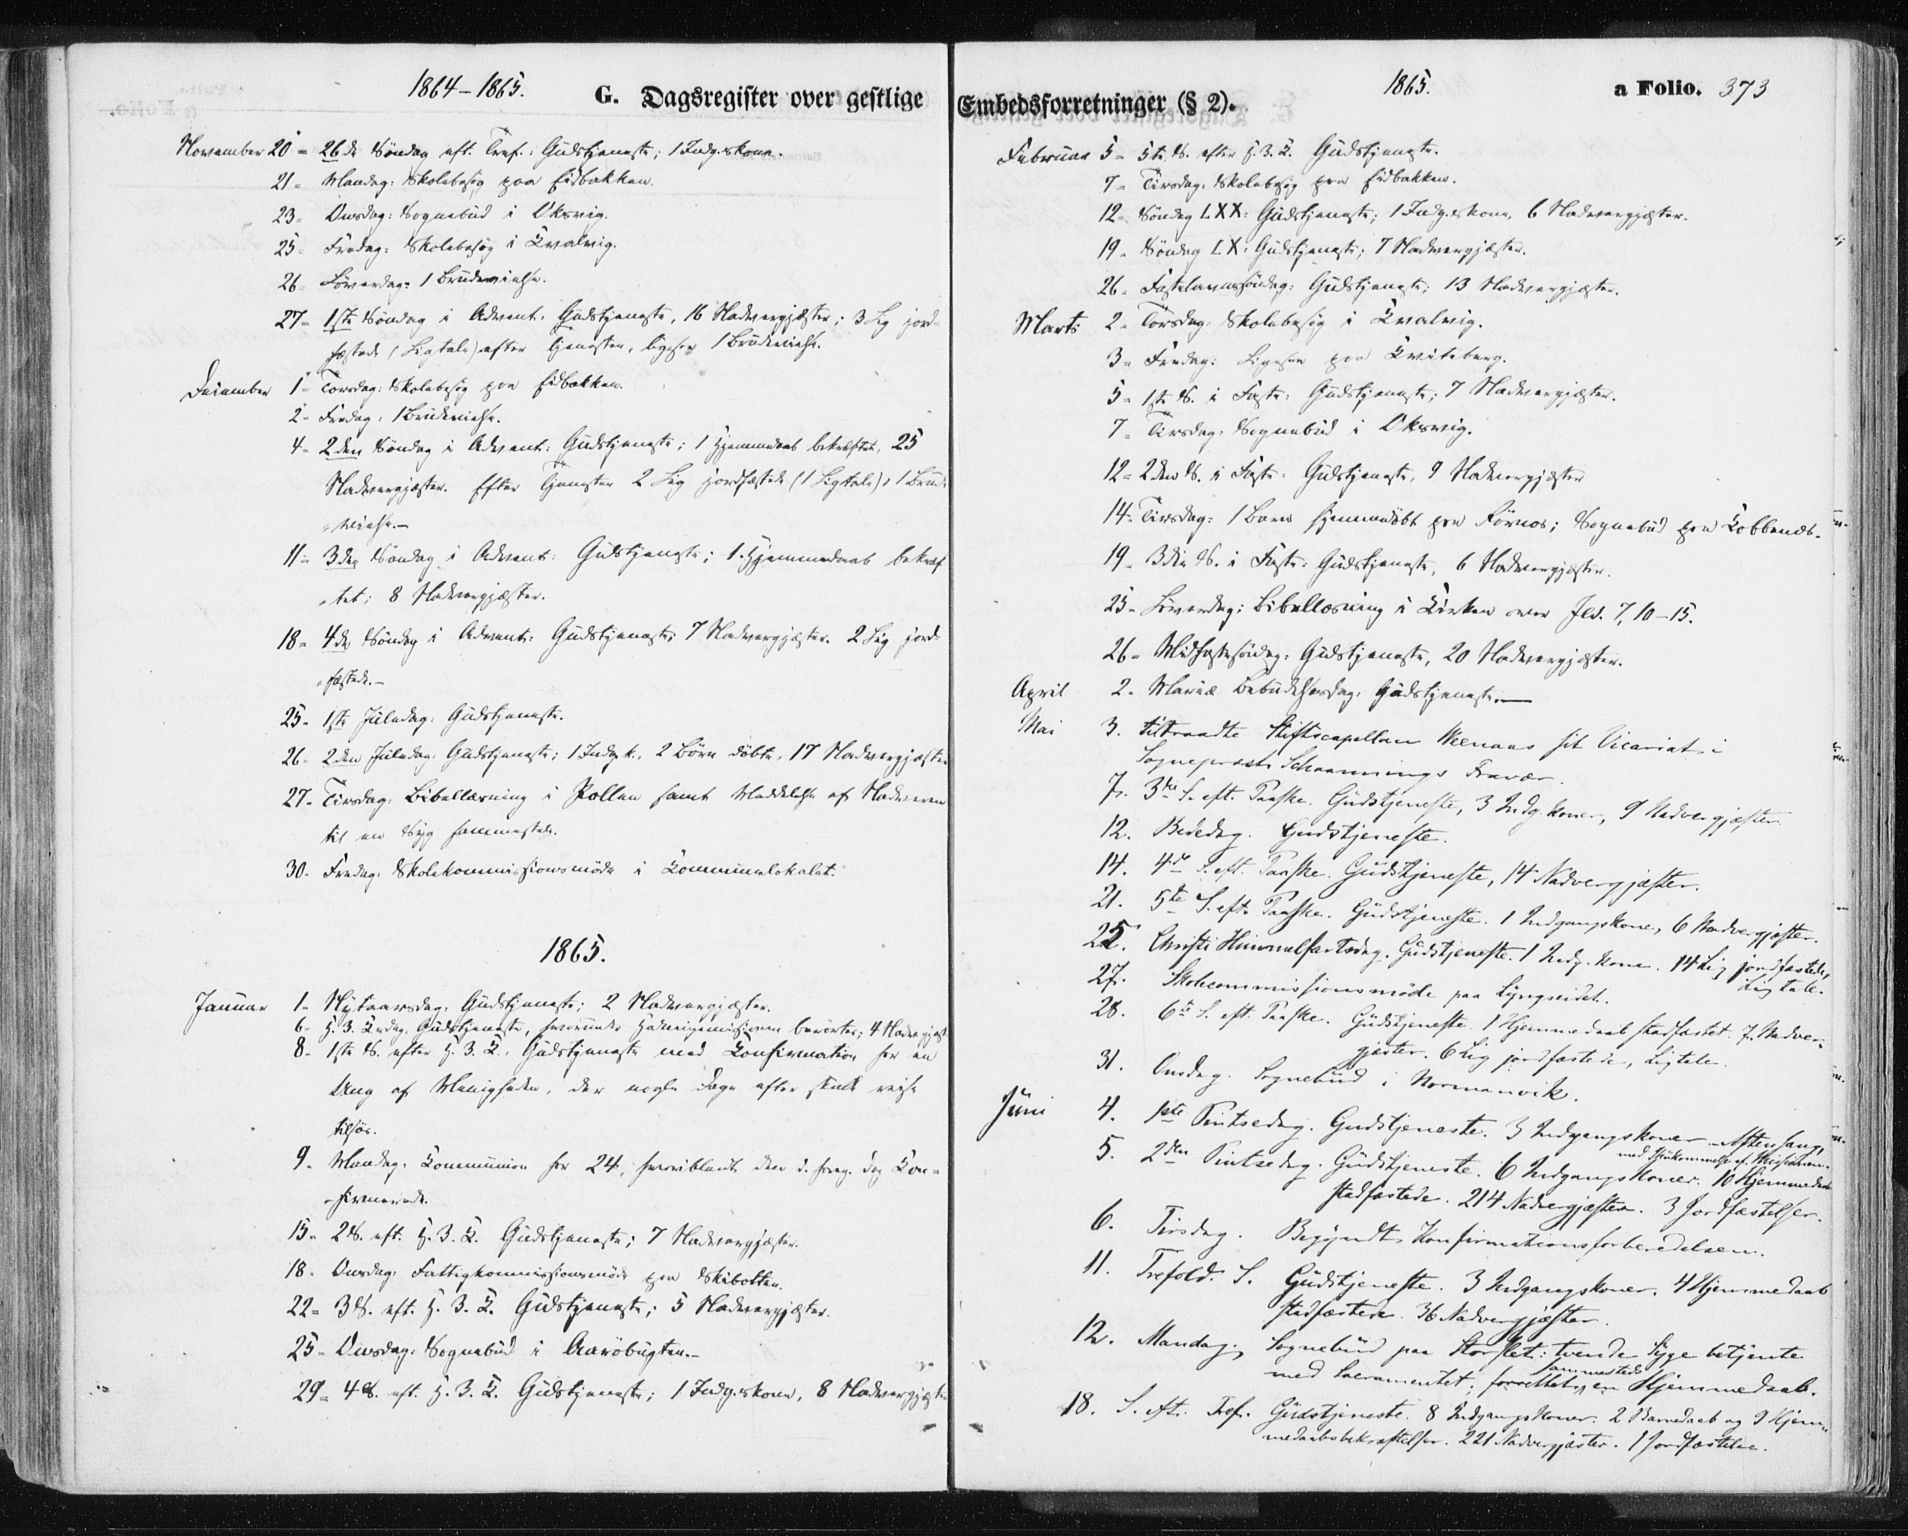 1864-1865.
G. Dagsregister over gestlige
November 20 = 26de Söndag eft. Tref.: Gudstjeneste; 1 Indg.skone.
21 = Mandag: Skolebesøg paa Eidbakken.
23 = Onsdag: Sognebud i Oksvig.
25 = Fredag: Skolebesøg i Kvalvig.
26 = Löverdag: 1 Brudevielse.
27 = 1ste Söndag i Advent: Gudstjeneste, 16 Nadvergjæster; 3 Lig jord-
fæstede (Ligtale) efter Tjenesten, ligesaa 1 Brudevielse.
December 1 = Torsdag: Skolebesøg paa Eidbakken.
2 = Fredag: 1 Brudevielse.
4 = 2den Söndag i Advent: Gudstjeneste; 1 Hjemmedaab bekræftet, 25
Nadvergjæster. Efter Tjenesten 2 Lig jordfæstede (1 Ligtale), 1 Brude
vielse.—
11 = 3die Söndag i Advent: Gudstjeneste; 1 Hjemmedaab bekræf
tet; 8 Nadvergjæster.
18 = 4de Söndag i Advent: Gudstjeneste; 7 Nadvergjæster. 2 Lig jord-
fæstede.—
25 = 1ste Juledag: Gudstjeneste.
26 = 2den Juledag: Gudstjeneste; 1 Indg.k. 2 Börn döbte, 17 Nadvergjæster
27 = Tirsdag: Bibellæsning i Pollen samt Meddelelse af Nadveren
til en Syg sammesteds.
30 = Fredag: Skolekommissionsmöde i Kommunelokalet.
1865.
Januar 1 = Nytaarsdag: Gudstjeneste; 2 Nadvergjæster.
6 = H. 3. K.dag: Gudstjeneste, hvorunder Hedningemissionen berörtes; 4 Nadvergjæst
8 = 1ste S. efter H. 3. K.: Gudstjeneste med Confirmation for en
Ung af Menigheden, der nogle Dage efter skulde reise
tilsøs.
9 = Mandag: Communion for 24, hvoriblandt den d. foreg. Dag Con=
firmerede.
15 = 2 S. eft. H. 3. K. Gudstjeneste; 7 Nadvergjæster.
18 = Onsdag: Fattigkommissionsmöde paa Skibotten.
22 = 3 S. eft. H. 3. K. Gudstjeneste; 5 Nadvergjæster.
25 = Onsdag: Sognebud i Aaröbugten.—
29 = 4 S. eft. H. 3. K. Gudstjeneste; 1 Indg.skone, 8 Nadvergjæster
1865.
a Folio. 373
Embedsforretninger (§ 2).
Februar 5 = 5te S. efter H. 3. K. Gudstjeneste.
7 = Tirsdag: Skolebesøg paa Eidbakken.
12 = Söndag LXX: Gudstjeneste; 1 Indg.skone, 6 Nadvergjæster.
19 = Söndag LX: Gudstjeneste; 7 Nadvergjæster.
26 = Fastelavnssöndag: Gudstjeneste; 13 Nadvergjæster.
Marts 2 = Torsdag: Skolebesøg i Kvalvig.
3 = Fredag: Ligesaa paa Kviteberg.
5 = 1ste S. i Faste: Gudstjeneste; 7 Nadvergjæster.
7 = Tirsdag: Sognebud i Oksvig.
12 = 2den S. i Faste: Gudstjeneste, 9 Nadvergjæster
14 = Tirsdag: 1 Barn hjemmedöbt paa Förnes; Sognebud paa Kobbenes.
19 = 3die S. i Faste: Gudstjeneste, 6 Nadvergjæster.
25 = Löverdag: Bibellæsning i Kirken over Jes. 7, 10-15.
26 = Midfastesöndag: Gudstjeneste, 20 Nadvergjæster.
April 2 = Mariæ Bebudelsesdag: Gudstjeneste.—
Mai 3. tiltraadte Stiftscapellan Weenaas sit Vicariat i
Sognepræst Schaannings Fravær.
7. 3die S. eft. Paaske. Gudstjeneste, 3 Indg.koner, 9 Nadvergjæster
12. Bededag. Gudstjeneste.
14. 4de S. eft. Paaske. Gudstjeneste, 14 Nadvergjæster.
21. 5te S. eft. Paaske. Gudstjeneste. 1 Indgangskone, 6 Nadvergjæster.
25. Christi Himmelfartsdag. Gudstjeneste. 1 Indg.kone. 14 Lig jordfæstede,
Ligtale.
27. Skolecommissionsmöde paa Lyngseidet.
28. 6te S. eft. Paaske. Gudstjeneste. 1 Hjemmedaab stadfæstet. 7 Nadver-
gjæster. 6 Lig jordfæstede, Ligtale.
31. Onsdag. Sognebud i Normanvik.
Juni 4. 1ste Pintsedag. Gudstjeneste. 3 Indgangskoner. Aftensang
med Ihukommelse af Missionen.
5. 2den Pintsedag. Gudstjeneste. 6 Indgangskoner. 10 Hjemmedaab
stadfæstede. 214 Nadvergjæster. 3 Jordfæstelser.
6. Tirsdag. Begyndte Konfirmationsforberedelsen.
11. Trefold. S. Gudstjeneste. 3 Indgangskoner. 4 Hjemmedaab
stadfæstede. 36 Nadvergjæster.
12. Mandag. Sognebud paa Storslet: tvende Syge betjente
med Sacramentet; forrettet sammesteds en Hjemmedaab.
18. S. eft. Tref. Gudstjeneste. 8 Indgangskoner. 2 Barnedaab og 9 Hjem-
medaabsbekræftelser. 221 Nadvergjæster. 1 Jordfæstelse.